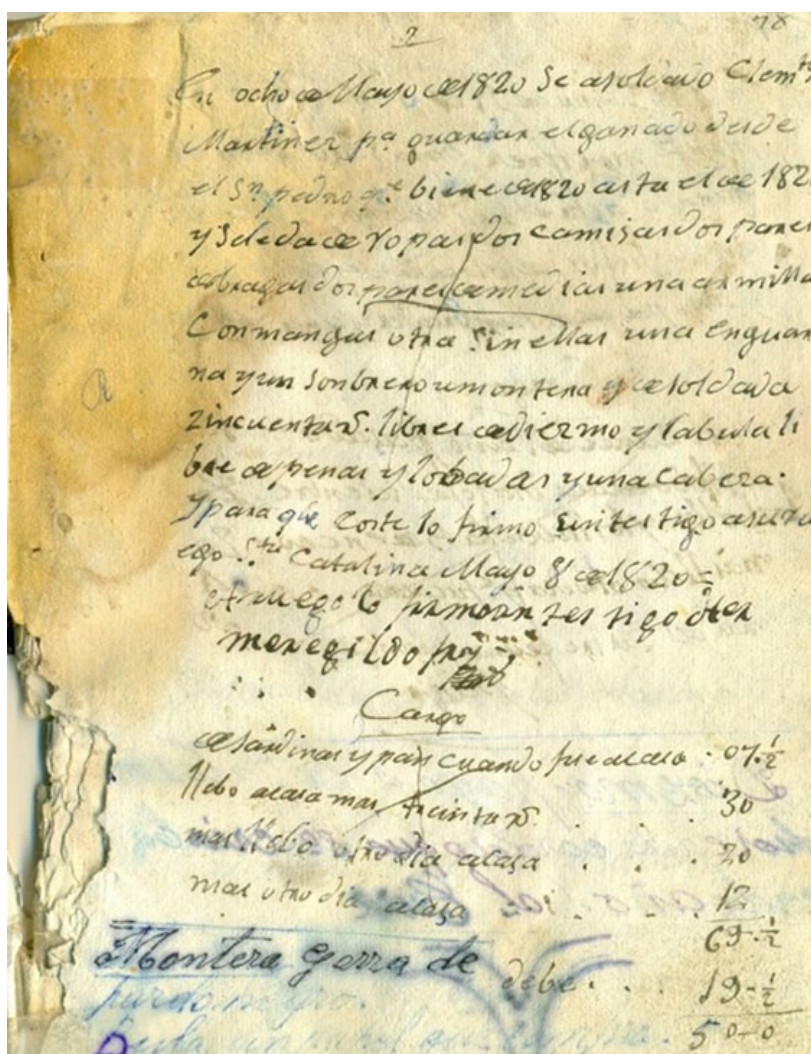 2
78
En ocho de Mayo de 1820 Se asoldado Clemte
Martinez pa guardar el ganado desde
el Sn pedro qe biene de 1820 asta el de 182
y Se le da de Ropa dos Camisas dos pares
de bragas dos pares de medias una armilla
Con mangas otra Sin ellas una enguari
na y un Sonbrero u montera y de soldada
zincuenta rs. libres de diezmo y labula li
bre de penas y lobadas y una Cabeza.
y para que Coste lo firmo Un testigo a su ru
ego Sta Catalina Mayo 8 de 1820 =
A ruego lo firmo un testigo
meregildo
Cargo
de Sardinas y pan cuando fue a casa . 07 - 1/2
llebo a casa mas treinta rs. 30
mas llebo otro dia a casa . . . 20
mas otro dia a casa . . . 12
69 - 1/2
Montera gorra de
debe . . . 19 - 1/2
pardo negro.
50 - 0